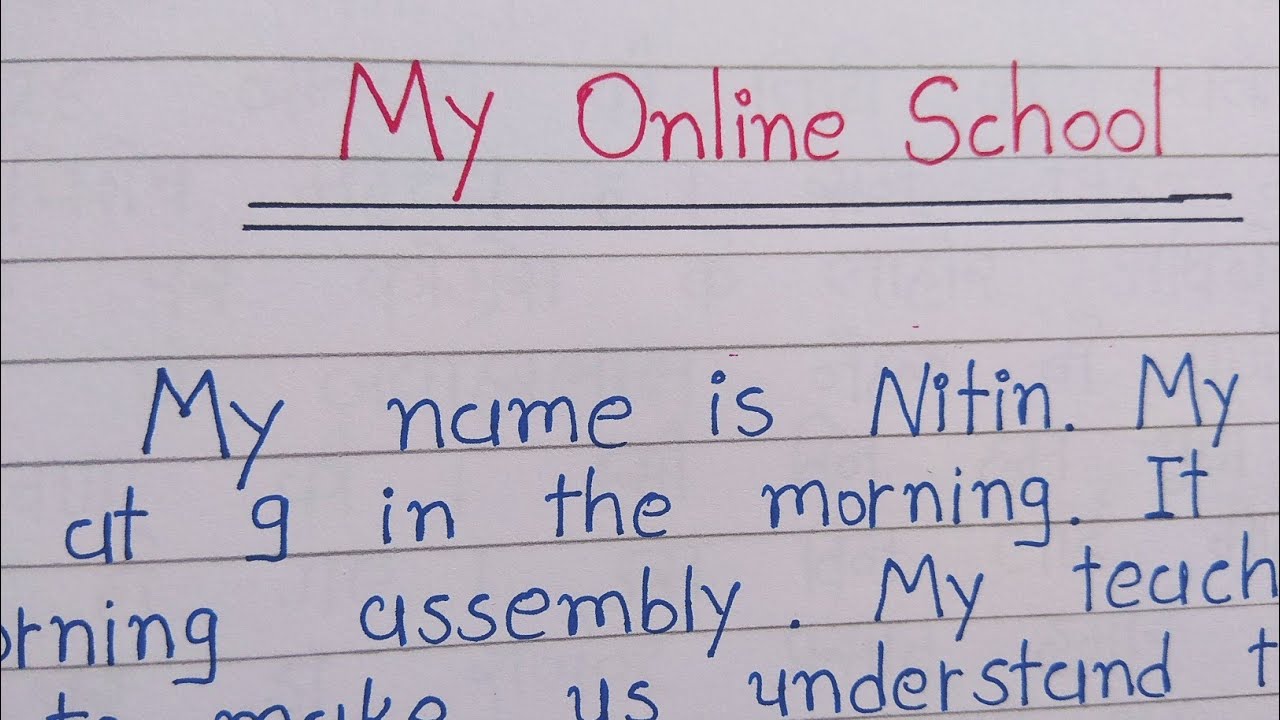 My Online School
My name is Nitin. My
at 9 in the morning. It
orning assembly. My teach
to make us understand t